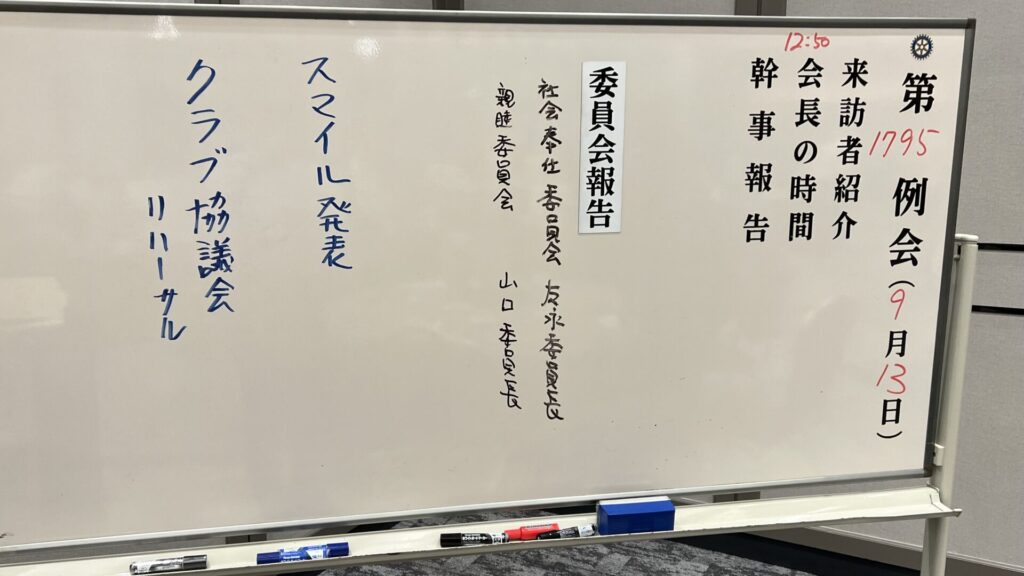 第1795例会(9月13日)
来訪者紹介
12:50
会長の時間
幹事報告
委員会報告
社会奉仕委員会 友永委員長
親睦委員会 山口委員長
スマイル発表
クラブ協議会
リハーサル